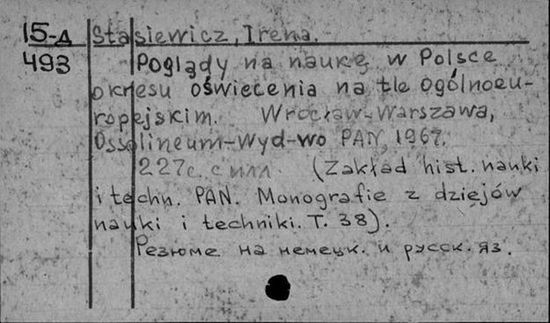 15-д Stasiewicz, Irena.
493 Poglądy na naukę w Polsce
okresu oświecenia na tle ogólnoeu-
ropejskim. Wrocław-Warszawa,
Ossolineum-Wyd-wo PAN, 1967.
227с. с илл. (Zakład hist. nauki
i techn. PAN. Monografie z dziejów
nauki i techniki. T. 38).
Резюме на немецк. и русск. яз.